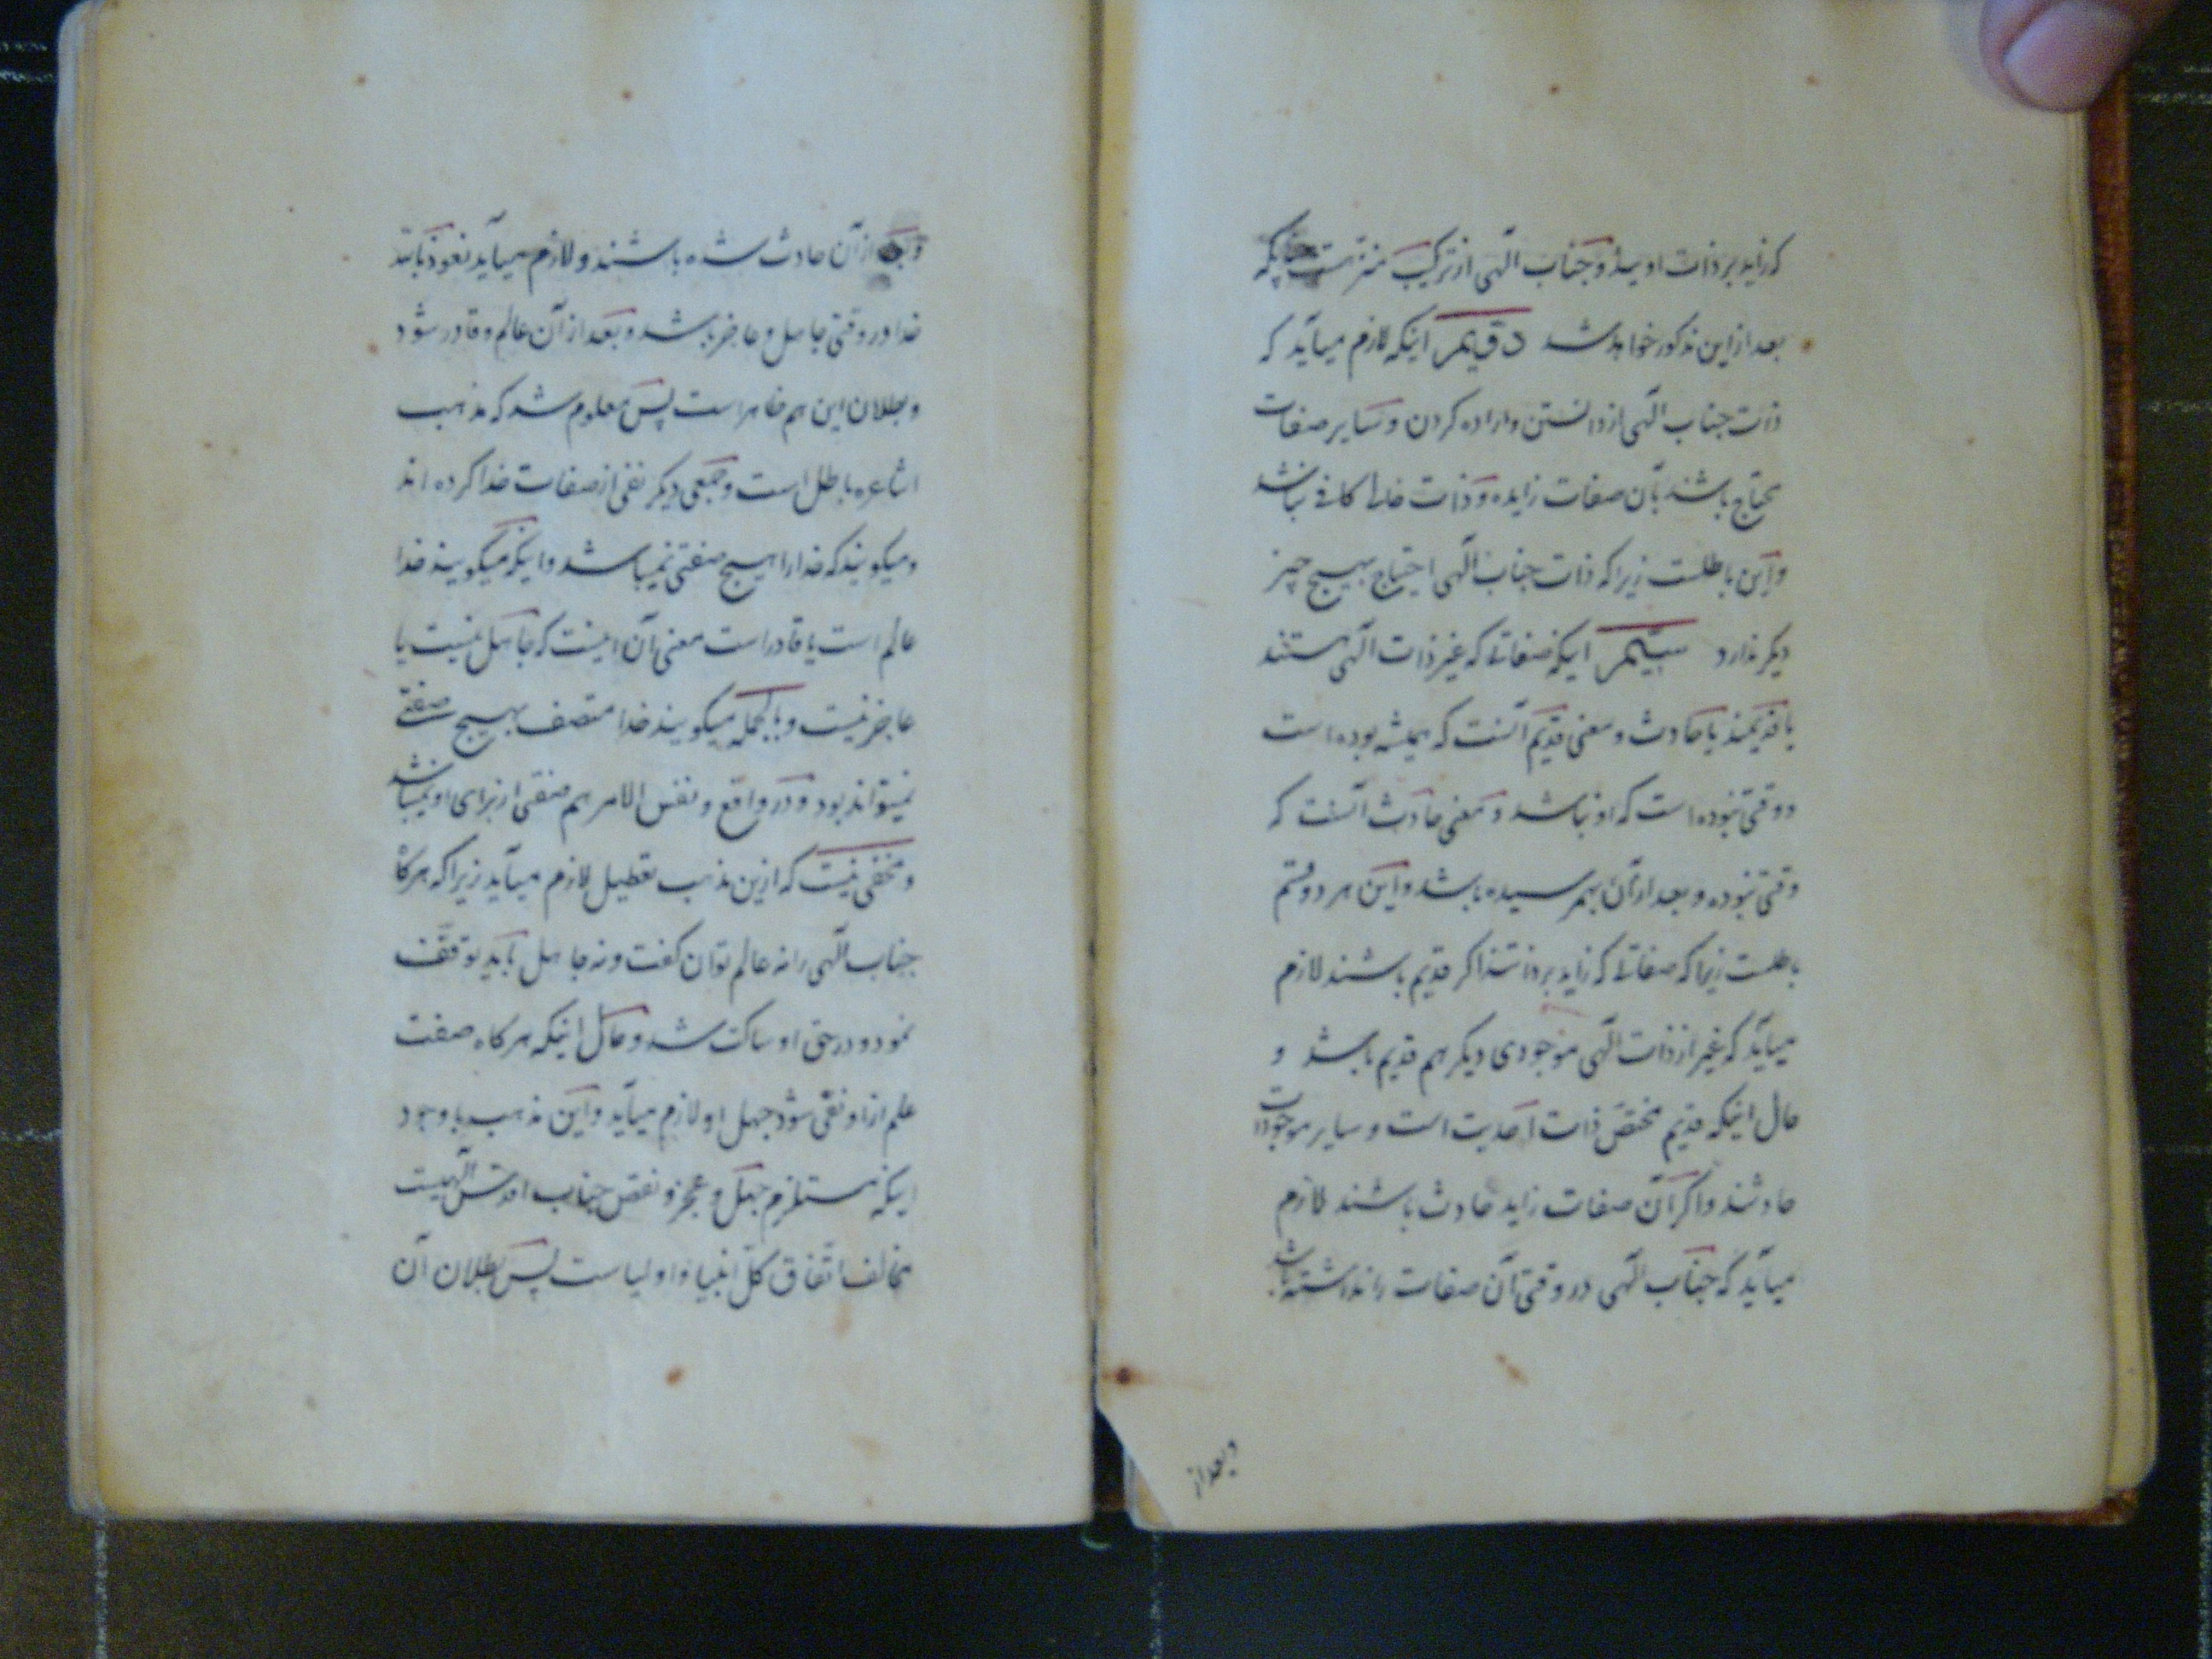 که زاید بر ذات اویند و جناب الهی از ترکیب منزهست چنانچه
بعد از این مذکور خواهد شد دویم اینکه لازم میآید که
ذات جناب الهی از دانستن و اراده کردن و سایر صفات
محتاج باشند بآن صفات زایده و ذات خدا کافی نباشد
و این باطلست زیرا که ذات جناب الهی احتیاج بهیچ چیز
دیگر ندارد سیّم اینکه صفاتی که غیر ذات الهی هستند
یا قدیمند یا حادث و معنی قدیم آنست که همیشه بوده است
و وقتی نبوده است که او نباشد و معنی حادث آنست که
وقتی نبوده و بعد از آن بهمرسیده باشد و این هر دو قسم
باطلست زیرا که صفاتی که زاید بر ذاتند اگر قدیم باشند لازم
میآید که غیر از ذات الهی موجودی دیگر هم قدیم باشد و
حال اینکه قدیم مختص ذات احدیت است و سایر موجودات
حادثند و اگر آن صفات زاید حادث باشند لازم
میآید که جناب الهی در وقتی آن صفات را نداشته باشد
و بعد از
و بعد از آن حادث شده باشند و لازم میآید نعوذ بالله
خدا در وقتی جاهل و عاجز باشد و بعد از آن عالم و قادر شود
و بطلان این هم ظاهر است پس معلوم شد که مذهب
اشاعره باطل است و جمعی دیگر نفی از صفات خدا کرده اند
و میگویند که خدا را هیچ صفتی نمیباشد و اینکه میگویند خدا
عالم است یا قادر است معنی آن اینست که جاهل نیست یا
عاجز نیست و بالجمله میگویند خدا متصف بهیچ صفتی
نمیتواند بود و در واقع و نفس الامر هم صفتی از برای او نمیباشد
و مخفی نیست که ازین مذهب تعطیل لازم میآید زیرا که هرگاه
جناب الهی را نه عالم توان گفت و نه جاهل باید توقّف
نمود و در حق او ساکت شد و حال اینکه هرگاه صفت
علم از او نفی شود جهل او لازم میآید و این مذهب با وجود
اینکه مستلزم جهل و عجز و نقص جناب اقدس الهیست
مخالف اتّفاق کلّ انبیا و اولیاست پس بطلان آن